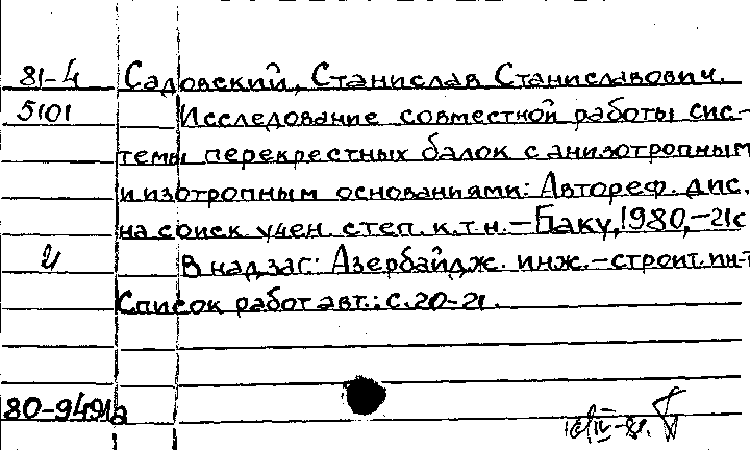 81-4 Садовский, Станислав Станиславович.
5101 Исследование совместной работы сис-
темы перекрестных балок с анизотропным
и изотропным основаниями: Автореф. дис.
на соиск. учен. степ. к.т.н. - Баку, 1980, - 21с
В надзаг: Азербайдж. инж.-строит. ин-т
Список работ авт.: с. 20-21.
80-9491а